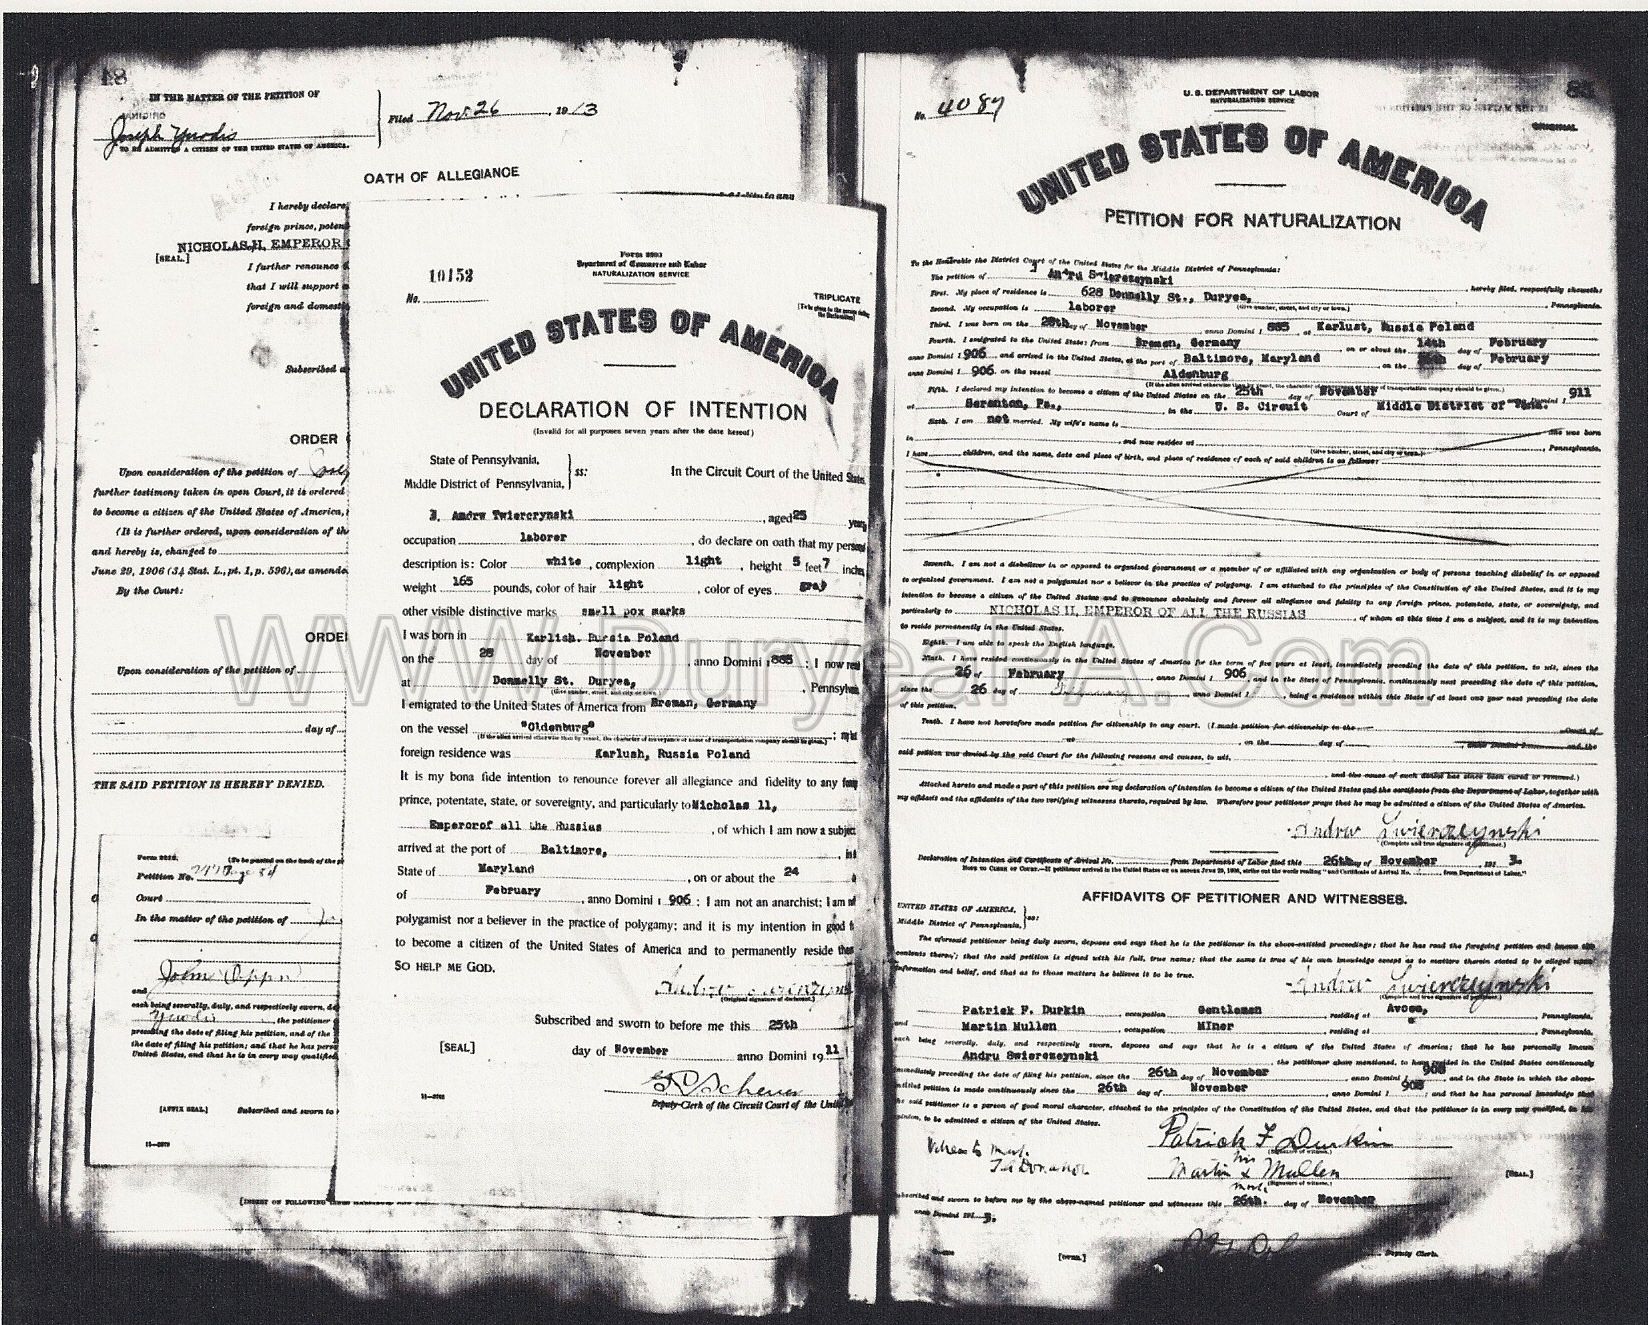 81
IN THE MATTER OF THE PETITION OF
Joseph Yuodis
TO BE ADMITTED A CITIZEN OF THE UNITED STATES OF AMERICA.
Filed Nov. 26, 1913
OATH OF ALLEGIANCE
I hereby declare,
foreign prince, poten
NICHOLAS II, EMPEROR
[SEAL.]
I further renounce
that I will support
foreign and domest
Subscribed a
ORDER
Upon consideration of the petition of
further testimony taken in open Court, it is ordered
to become a citizen of the United States of America,
(It is further ordered, upon consideration of th
and hereby is, changed to
June 29, 1906 (34 Stat. L., pt. 1, p. 596), as amende
By the Court:
ORDE
Upon consideration of the petition of
day of
THE SAID PETITION IS HEREBY DENIED.
Form 2226.
(To be pasted on the back of the p
Petition No.
Court
In the matter of the petition of
John
and
each being severally, duly, and respectively sworn, de
Yuodis, the petitioner
preceding the date of filing his petition, and of the
the date of filing his petition; and that he has perso
United States, and that he is in every way qualified,
[AFFIX SEAL.] Subscribed and sworn to
[INSERT OF FOLLOWING
Form 2203
Department of Commerce and Labor
NATURALIZATION SERVICE
10152
No.
TRIPLICATE
UNITED STATES OF AMERICA
DECLARATION OF INTENTION
(Invalid for all purposes seven years after the date hereof)
State of Pennsylvania,
Middle District of Pennsylvania,
ss:
In the Circuit Court of the United States
I, Andrw Twierczynski, aged 25 years
occupation laborer, do declare on oath that my personal
description is: Color white, complexion light, height 5 feet 7 inches
weight 165 pounds, color of hair light, color of eyes gray
other visible distinctive marks small pox marks
I was born in Karlish. Russia Poland
on the 28 day of November, anno Domini 1885; I now resi
at Donnelly St. Duryea, Pennsylvan
(Give number, street, and city or town.)
I emigrated to the United States of America from Bremen, Germany
on the vessel "Oldenburg"; my last
(If the alien arrived otherwise than by vessel, the character of conveyance or name of transportation company should be given.)
foreign residence was Karlush, Russia Poland
It is my bona fide intention to renounce forever all allegiance and fidelity to any foreig
prince, potentate, state, or sovereignty, and particularly to Nicholas 11,
Emperorof all the Russias, of which I am now a subject
arrived at the port of Baltimore, in
State of Maryland, on or about the 24
of February, anno Domini 1906: I am not an anarchist; I am not
polygamist nor a believer in the practice of polygamy; and it is my intention in good f
to become a citizen of the United States of America and to permanently reside ther
SO HELP ME GOD.
Andrew Swierczyns
(Original signature of declarant.)
Subscribed and sworn to before me this 25th
[SEAL] day of November anno Domini 1911
Deputy-Clerk of the Circuit Court of the Unit
No. 4087
U. S. DEPARTMENT OF LABOR
NATURALIZATION SERVICE
ORIGINAL
UNITED STATES OF AMERICA
PETITION FOR NATURALIZATION
To the Honorable the District Court of the United States for the Middle District of Pennsylvania:
The petition of Andru Swierczynski, hereby filed, respectfully showeth:
First. My place of residence is 628 Donnelly St., Duryea, Pennsylvania.
(Give number, street, and city or town.)
Second. My occupation is laborer
Third. I was born on the 28th day of November anno Domini 1885 at Karlust, Russia Poland
Fourth. I emigrated to the United States from Bremen, Germany on or about the 14th day of February
anno Domini 1906 and arrived in the United States, at the port of Baltimore, Maryland on the day of February
anno Domini 1906 on the vessel Aldenburg
Fifth. I declared my intention to become a citizen of the United States on the 25th day of November anno Domini 1911
at Scranton, Pa., in the U. S. Circuit Court of Middle District of Penn.
Sixth. I am not married. My wife's name is She was born
in and now resides at Pennsylvania.
(Give number, street, and city or town.)
I have children, and the name, date and place of birth, and place of residence of each of said children is as follows:
Seventh. I am not a disbeliever in or opposed to organized government or a member of or affiliated with any organization or body of persons teaching disbelief in or opposed
to organized government. I am not a polygamist nor a believer in the practice of polygamy. I am attached to the principles of the Constitution of the United States, and it is my
intention to become a citizen of the United States and to renounce absolutely and forever all allegiance and fidelity to any foreign prince, potentate, state, or sovereignty, and
particularly to NICHOLAS II, EMPEROR OF ALL THE RUSSIAS, of whom at this time I am a subject, and it is my intention
to reside permanently in the United States.
Eighth. I am able to speak the English language.
Ninth. I have resided continuously in the United States of America for the term of five years at least, immediately preceding the date of this petition, to wit, since the
26 of February anno Domini 1906, and in the State of Pennsylvania, continuously next preceding the date of this petition,
since the 26 day of anno Domini 1, being a residence within this State of at least one year next preceding the date
of this petition.
Tenth. I have not heretofore made petition for citizenship to any court. (I made petition for citizenship to the Court of
at, on the day of anno Domini 1 and the
said petition was denied by the said Court for the following reasons and causes, to wit,
and the cause of such denial has since been cured or removed.)
Attached hereto and made a part of this petition are my declaration of intention to become a citizen of the United States and the certificate from the Department of Labor, together with
my affidavit and the affidavits of the two verifying witnesses thereto, required by law. Wherefore your petitioner prays that he may be admitted a citizen of the United States of America.
Andrw Swierczeynski
(Complete and true signature of petitioner.)
Declaration of Intention and Certificate of Arrival No. from Department of Labor filed this 26th day of November, 1913.
NOTE TO CLERK OF COURT.—If petitioner arrived in the United States on or before JUNE 29, 1906, strike out the words reading "and Certificate of Arrival No. from Department of Labor."
AFFIDAVITS OF PETITIONER AND WITNESSES.
UNITED STATES OF AMERICA,
Middle District of Pennsylvania,
ss:
The aforesaid petitioner being duly sworn, deposes and says that he is the petitioner in the above-entitled proceedings; that he has read the foregoing petition and knows the
contents thereof; that the said petition is signed with his full, true name; that the same is true of his own knowledge except as to matters therein stated to be alleged upon
information and belief, and that as to those matters he believes it to be true.
Andrw Swierczeynski
(Complete and true signature of petitioner.)
Patrick F. Durkin, occupation Gentleman, residing at Avoca, Pennsylvania,
and Martin Mullen, occupation Miner, residing at, Pennsylvania,
each being severally, duly, and respectively sworn, deposes and says that he is a citizen of the United States of America; that he has personally known
Andru Swierczeynski, the petitioner above mentioned, to have resided in the United States continuously
immediately preceding the date of filing his petition, since the 26th day of November anno Domini 1908, and in the State in which the above-
entitled petition is made continuously since the 26th day of November, anno Domini 1908; and that he has personal knowledge that
the said petitioner is a person of good moral character, attached to the principles of the Constitution of the United States, and that the petitioner is in every way qualified, in his
opinion, to be admitted a citizen of the United States.
Patrick F Durkin
(Signature of witness.)
Witness to mark.
Martin his x mark Mullen
(Signature of witness.)
[SEAL.]
Subscribed and sworn to before me by the above-named petitioner and witnesses this 26th. day of November
anno Domini 1913.
[SEAL.]
Deputy Clerk.
www.DuryeaPA.Com